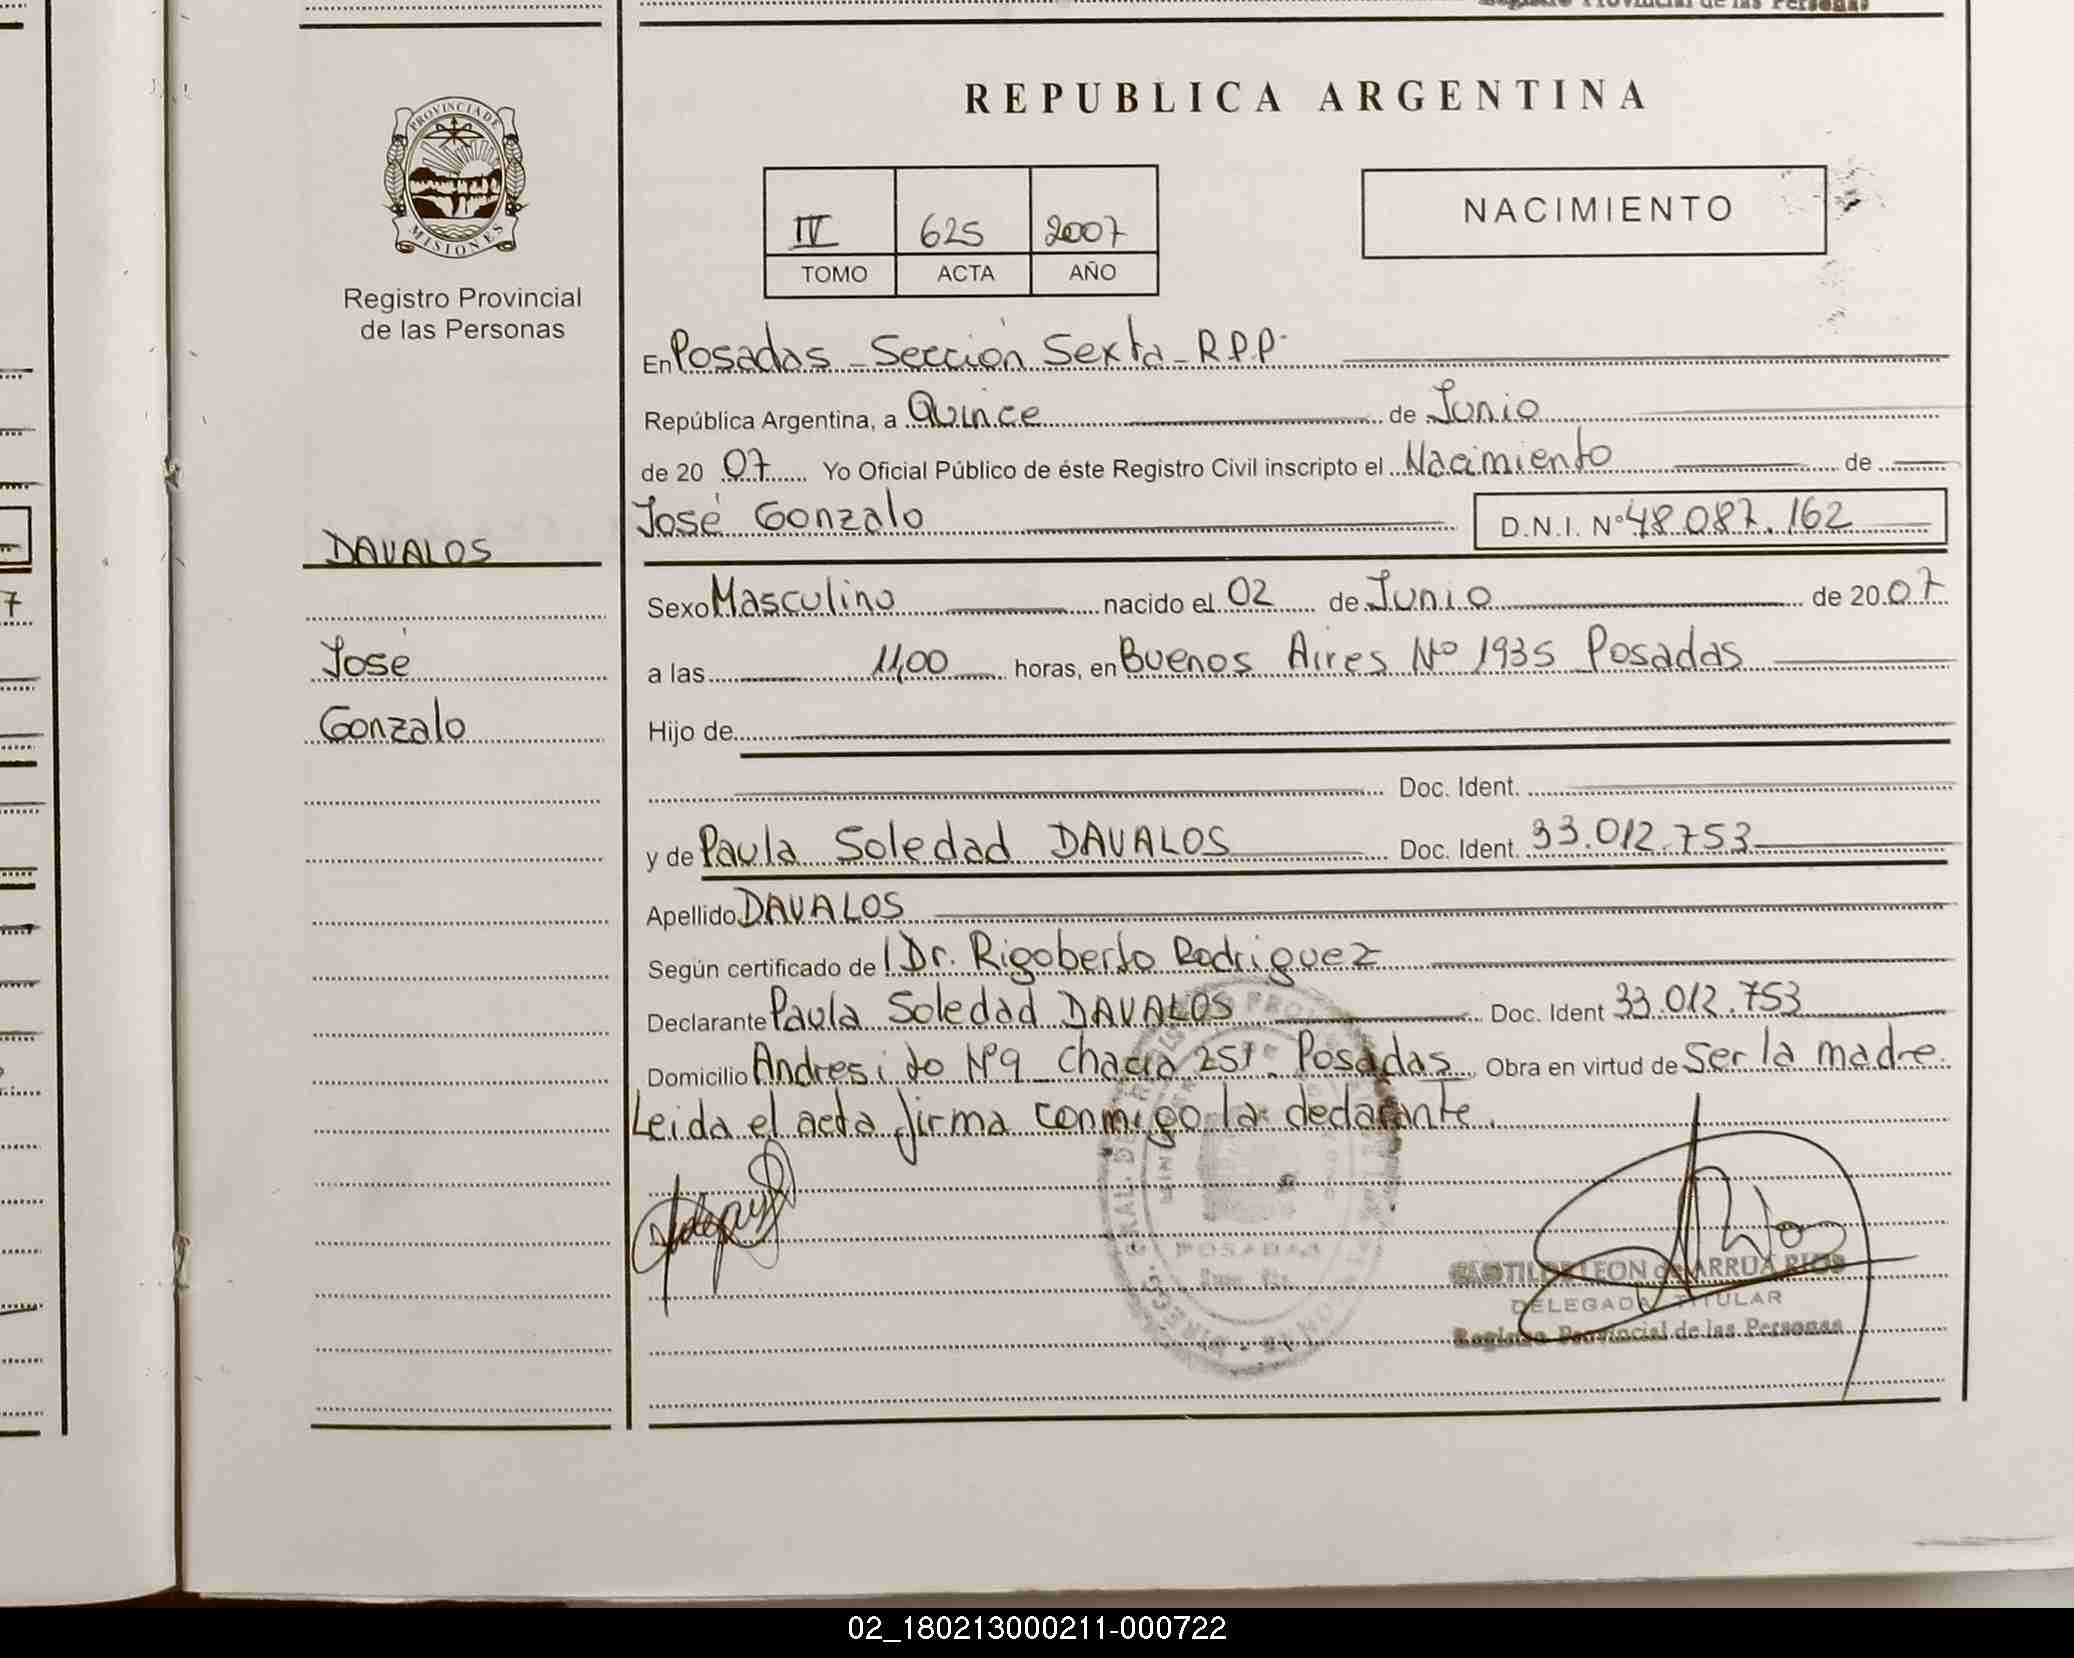 Registro Provincial de las Personas
REPUBLICA ARGENTINA
PROVINCIA DE
MISIONES
Registro Provincial
de las Personas
IV 625 2007
TOMO ACTA AÑO
NACIMIENTO
En Posadas - Sección Sexta - R.P.P.
República Argentina, a Quince de Junio
de 20 07 Yo Oficial Público de éste Registro Civil inscripto el Nacimiento de
José Gonzalo D.N.I. Nº 48.087.162
DAVALOS
José
Gonzalo
Sexo Masculino nacido el 02 de Junio de 20 07
a las 11,00 horas, en Buenos Aires Nº 1935 Posadas
Hijo de
Doc. Ident.
y de Paula Soledad DAVALOS Doc. Ident. 33.012.753
Apellido DAVALOS
Según certificado de l Dr. Rigoberto Rodriguez
Declarante Paula Soledad DAVALOS Doc. Ident 33.012.753
Domicilio Andresito Nº 9 Chacra 251. Posadas Obra en virtud de Ser la madre.
Leida el acta firma conmigo la declarante.
POSADAS
LEON de ARRUA RIOS
DELEGADA TITULAR
Registro Provincial de las Personas
7
02_180213000211-000722